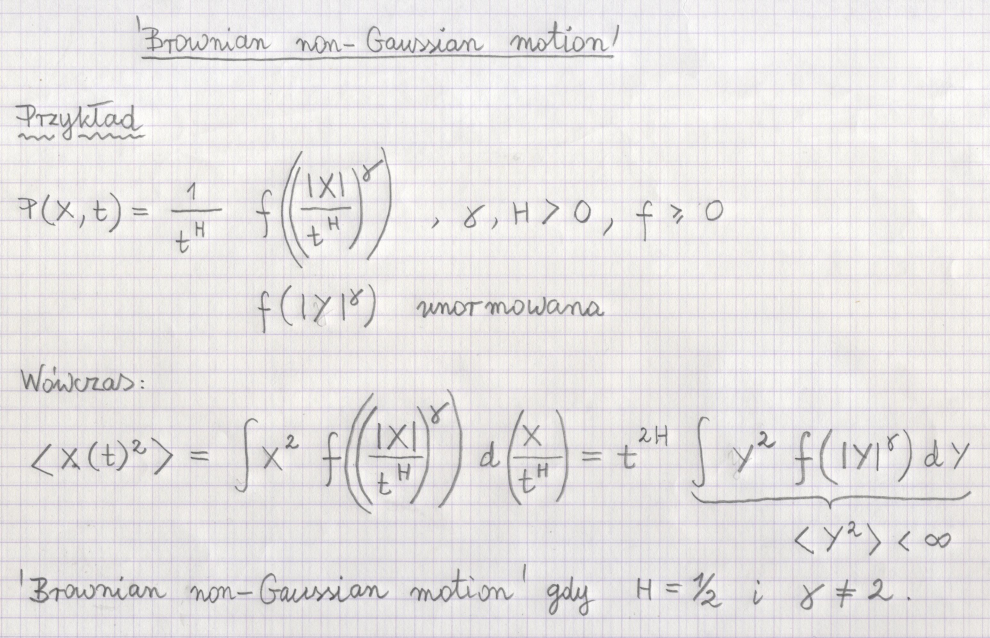 'Brownian non-Gaussian motion'
Przykład
P(X,t) = 1/t^H f((|X|/t^H)^γ) , γ, H > 0, f ⩾ 0
f(|Y|^γ) unormowana
Wówczas:
<X(t)²> = ∫ X² f((|X|/t^H)^γ) d(X/t^H) = t^2H ∫ Y² f(|Y|^γ) dY
<Y²> < ∞
'Brownian non-Gaussian motion' gdy H = 1/2 i γ ≠ 2.